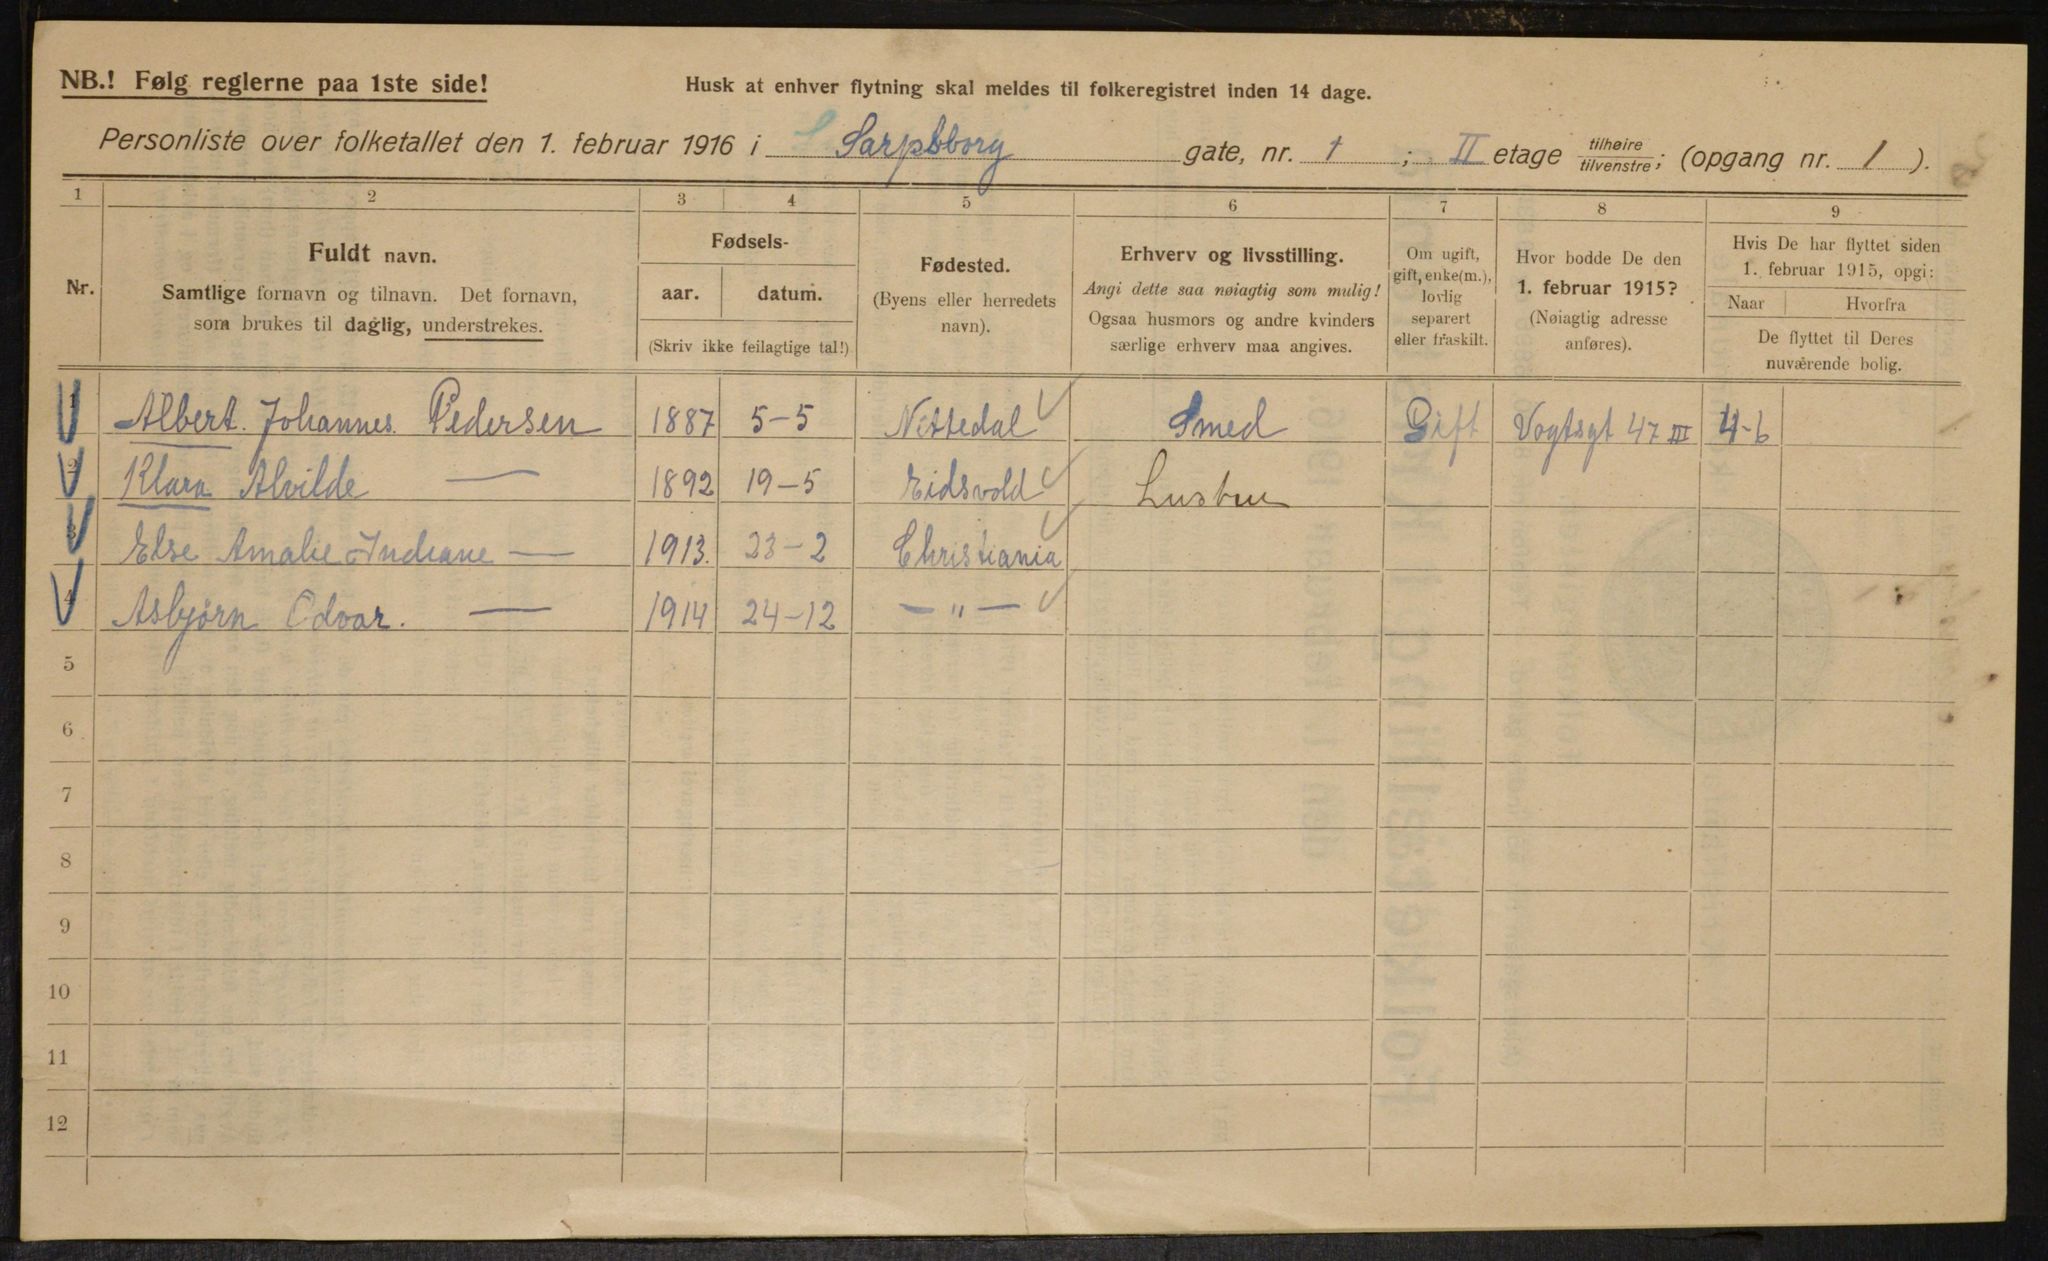 NB.! Følg reglerne paa 1ste side! Husk at enhver flytning skal meldes til folkeregistret inden 14 dage.
Personliste over folketallet den 1. februar 1916 i Sarpsborg gate, nr. 1 ; II etage tilhøire/tilvenstre; (opgang nr. 1 ).
1 2 3 4 5 6 7 8 9
Nr.
Fuldt navn.
Samtlige fornavn og tilnavn. Det fornavn,
som brukes til daglig, understrekes.
Fødsels-
aar. datum.
(Skriv ikke feilagtige tal!)
Fødested.
(Byens eller herredets
navn).
Erhverv og livsstilling.
Angi dette saa nøiagtig som mulig!
Ogsaa husmors og andre kvinders
særlige erhverv maa angives.
Om ugift,
gift, enke(m.),
lovlig
separert
eller fraskilt.
Hvor bodde De den
1. februar 1915?
(Nøiagtig adresse
anføres).
Hvis De har flyttet siden
1. februar 1915, opgi:
Naar Hvorfra
De flyttet til Deres
nuværende bolig.
1 Albert. Johannes. Pedersen 1887 5-5 Nittedal Smed Gift Vogtsgt 47 III 4-6
2 Klara Alvilde — 1892 19-5 Eidsvold
3 Else Amalie — 1913. 23-2 Christiania
4 Asbjørn Odvar. — 1914 24-12 — " —
5
6
7
8
9
10
11
12